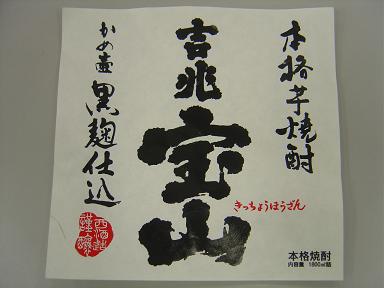 本格芋焼酎
吉兆
宝山
きっちょうほうざん
かめ壺黒麹仕込
西酒造
謹醸
本格焼酎
内容量 1800ml詰